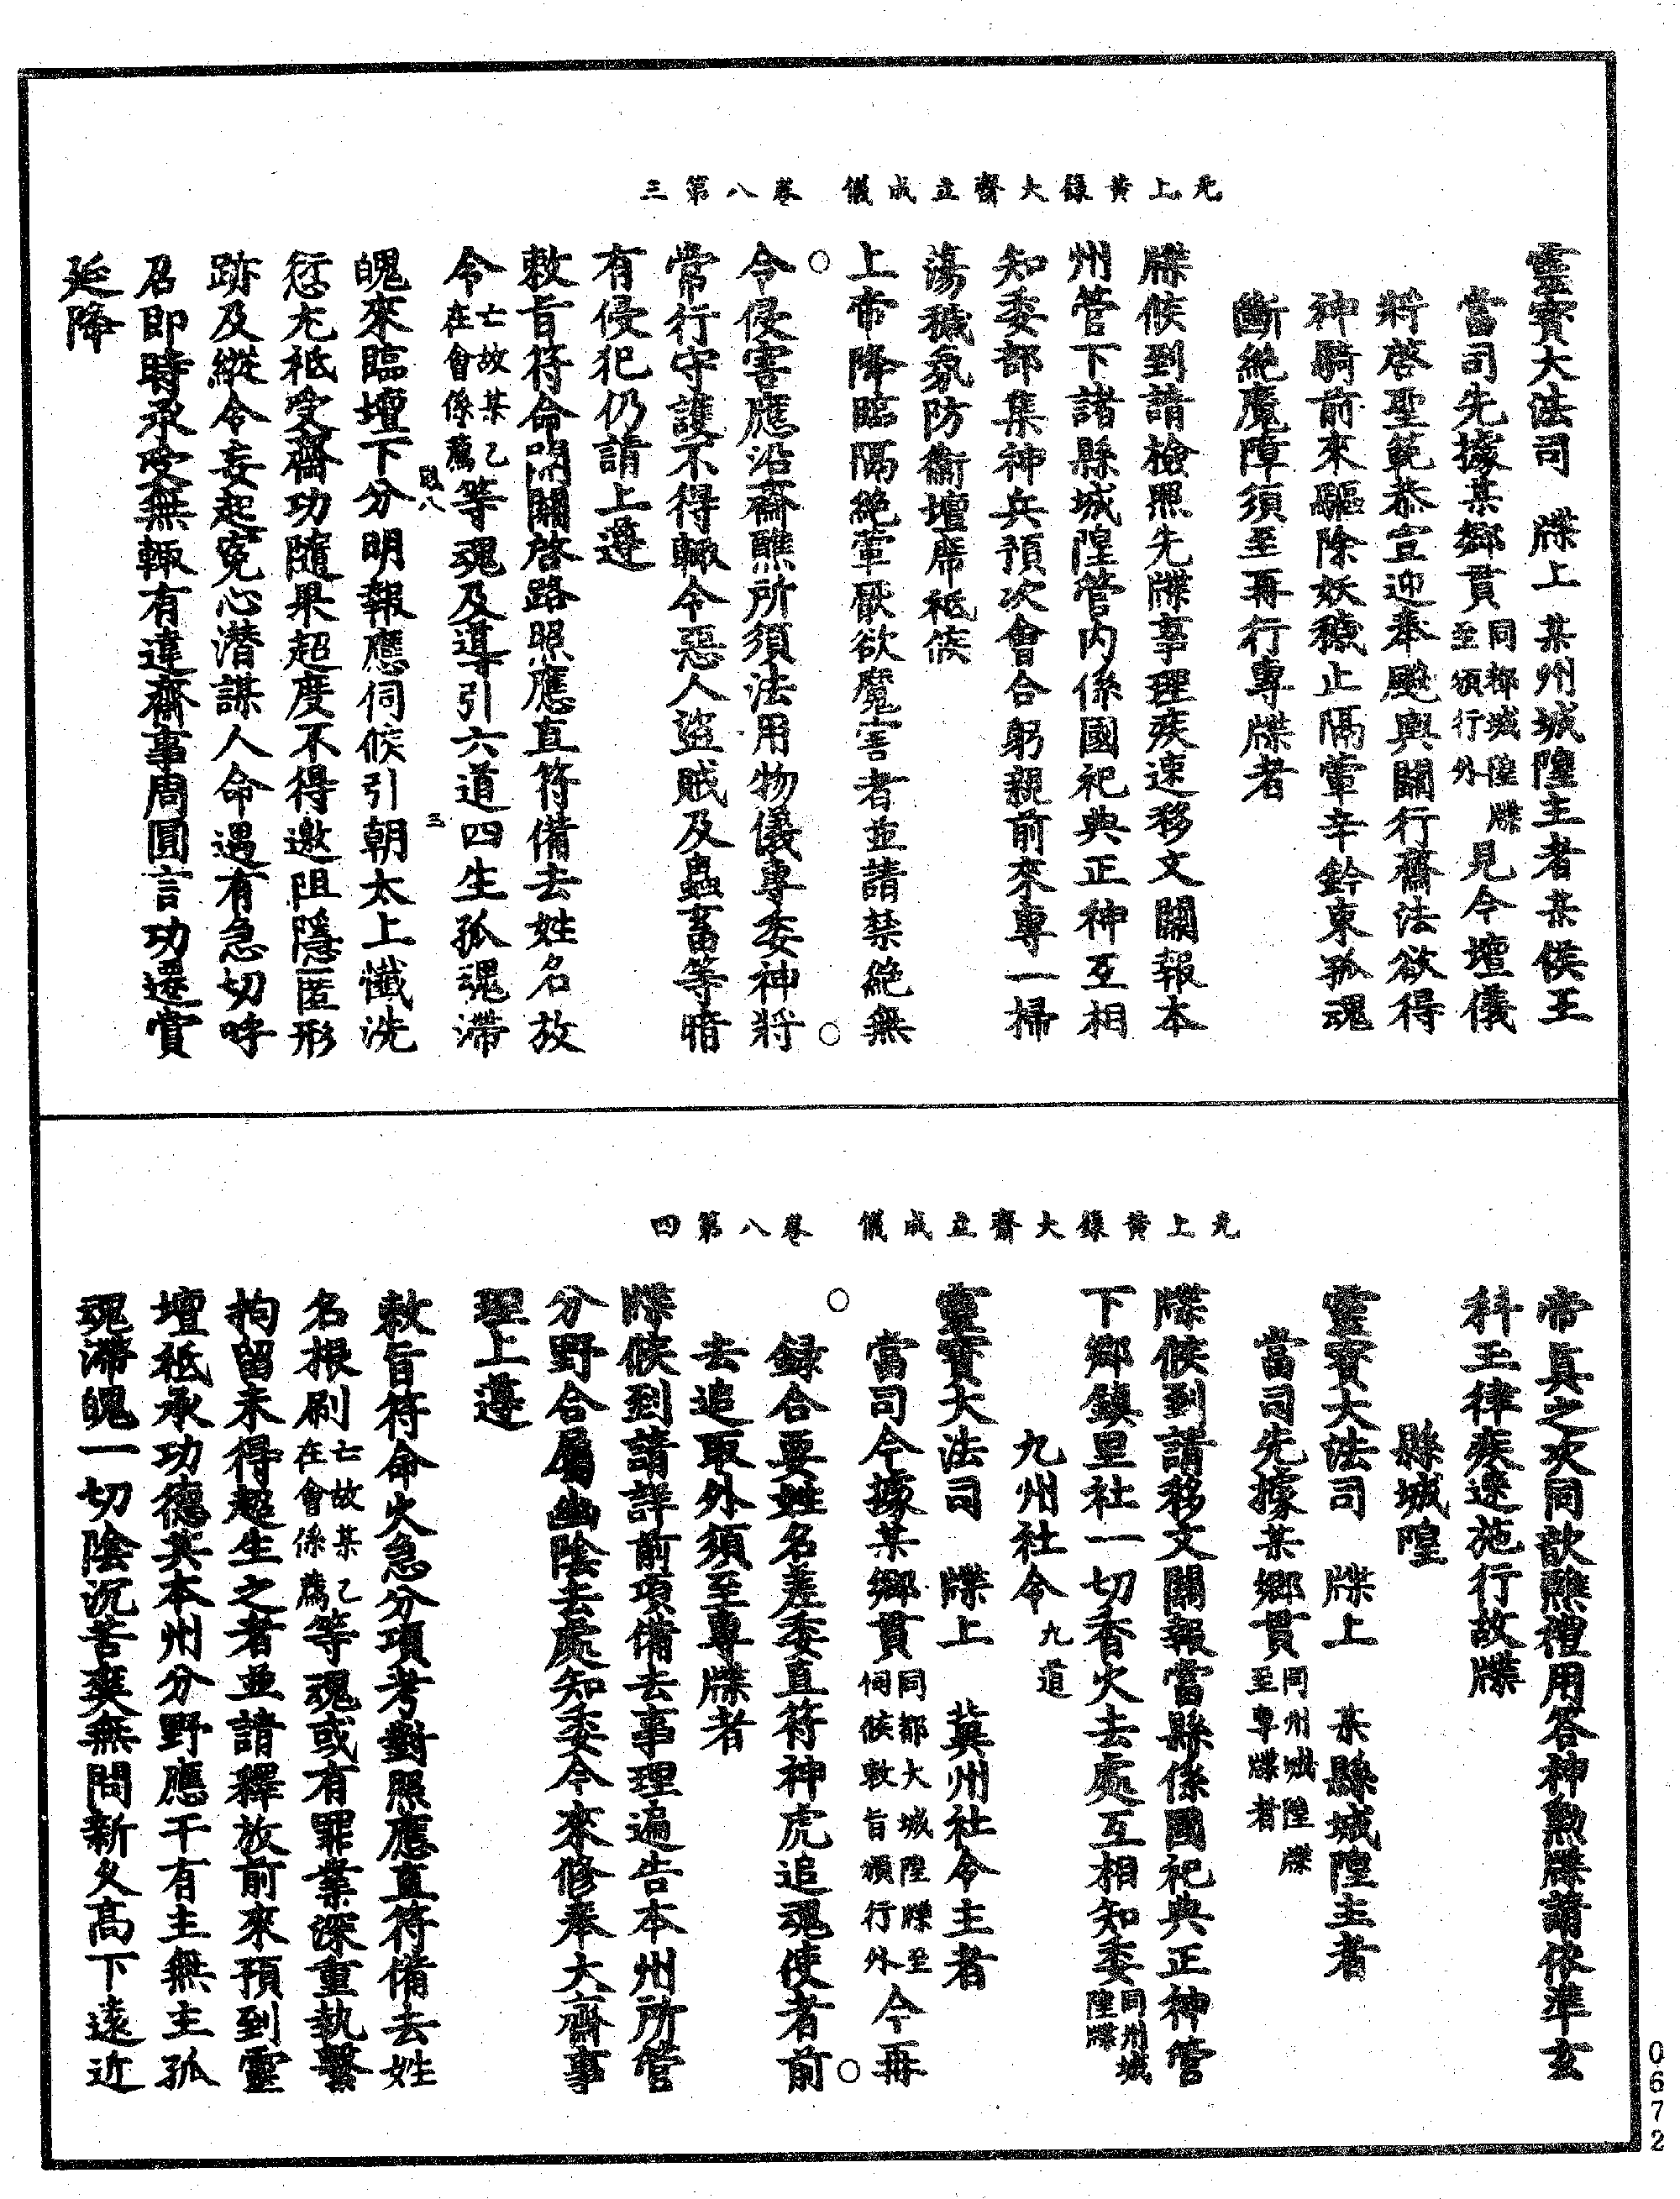 无上黃籙大齋立成儀　卷八第三
靈寶大法司　牒上　某州城隍主者某侯王
當司先據某鄉貫同都城隍牒至頒行外見今壇儀
將啓聖範恭宣迎奉飈輿關行齋法欲得
神騎前來驅除妖穢止隔葷辛鈐束孤魂
斷絕魔障須至再行專牒者
牒候到請檢照先牒事理疾速移文關報本
州管下諸縣城隍管內係國祀典正神互相
知委部集神兵預次會合躬親前來專一掃
蕩穢氛防衛壇席祗候
上帝降臨隔絕葷厭欲魔害者並請禁絕無
令侵害應沿齋醮所須法用物儀專委神將
常行守護不得輒令惡人盜賊及蟲畜等暗
有侵犯仍請上遵
敕旨符命開關啓路照應直符備去姓名放
令亡故某乙在會係薦等魂及導引六道四生孤魂滯
魄來臨壇下分明報應伺候引朝太上懺洗
愆尤祗受齋功隨果超度不得邀阻隱匿形
跡及縱令妄起冤心潛謀人命遇有急切呼
召即時承受無輒有違齋事周圓言功遷賞
延降
无上黃籙大齋立成儀　卷八第四
帝真之次同歆醮禮用答神勲牒請依準玄
科王律疾速施行故牒
縣城隍
靈寶大法司　牒上　某縣城隍主者
當司先據某鄉貫同州城隍牒至專牒者
牒候到請移文關報當縣係國祀典正神管
下鄉鎮里社一切香火去處互相知委同州城隍牒
九州社令九道
靈寶大法司　牒上　冀州社令主者
當司今據某鄉貫同都大城隍牒至伺候敕旨頒行外今再
録合要姓名差委直符神虎追魂使者前
去追取外須至專牒者
牒候到請詳前項備去事理遍告本州所管
分野合屬幽陰去處知委今來修奉大齋事
理上遵
敕旨符命火急分項考對照應直符備去姓
名根刷亡故某乙在會係薦等魂或有罪業深重執繫
拘留未得超生之者並請釋放前來預到靈
壇祗承功德英本州分野應干有主無主孤
魂滯魄一切陰沉苦爽無問新久高下遠近
0672